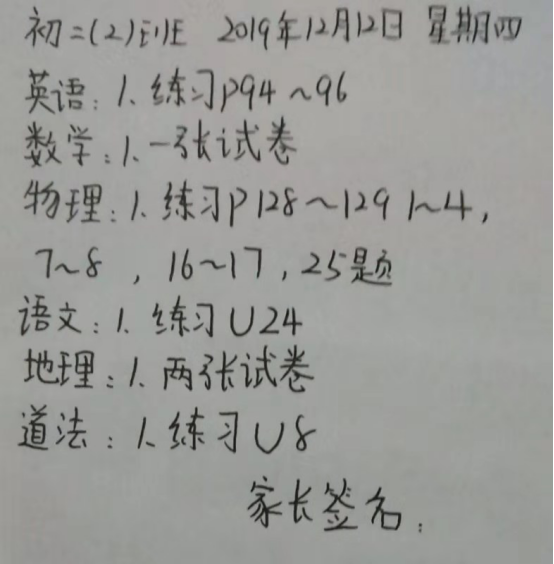 初二(2)班 2019年12月12日 星期四
英语：1. 练习P94～96
数学：1. 一张试卷
物理：1. 练习P128～129 1～4，
7～8，16～17，25题
语文：1. 练习U24
地理：1. 两张试卷
道法：1. 练习U8
家长签名：